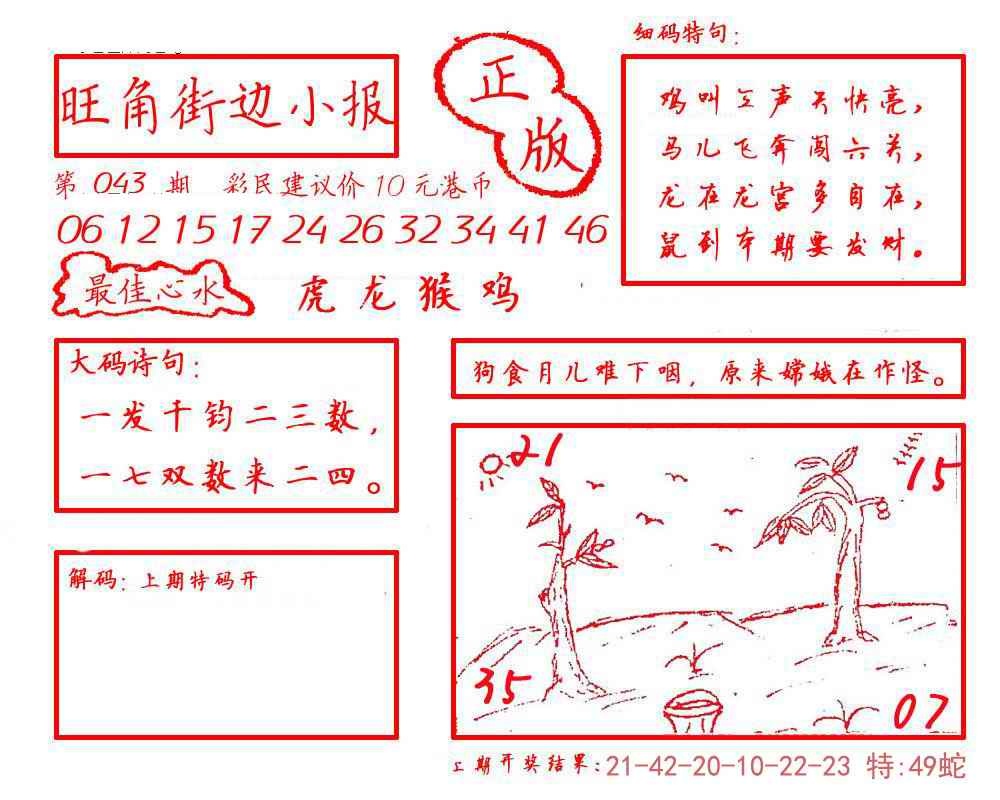 旺角街边小报
正版
第 043 期 彩民建议价10元港币
06 12 15 17 24 26 32 34 41 46
最佳心水 虎龙猴鸡
细码特句:
鸡叫三声天快亮,
马儿飞奔闯六关,
龙在龙宫多自在,
鼠到本期要发财。
大码诗句:
一发千钧二三数,
一七双数来二四。
狗食月儿难下咽, 原来嫦娥在作怪。
21
15
35
07
解码: 上期特码开
上期开奖结果:21-42-20-10-22-23 特:49蛇